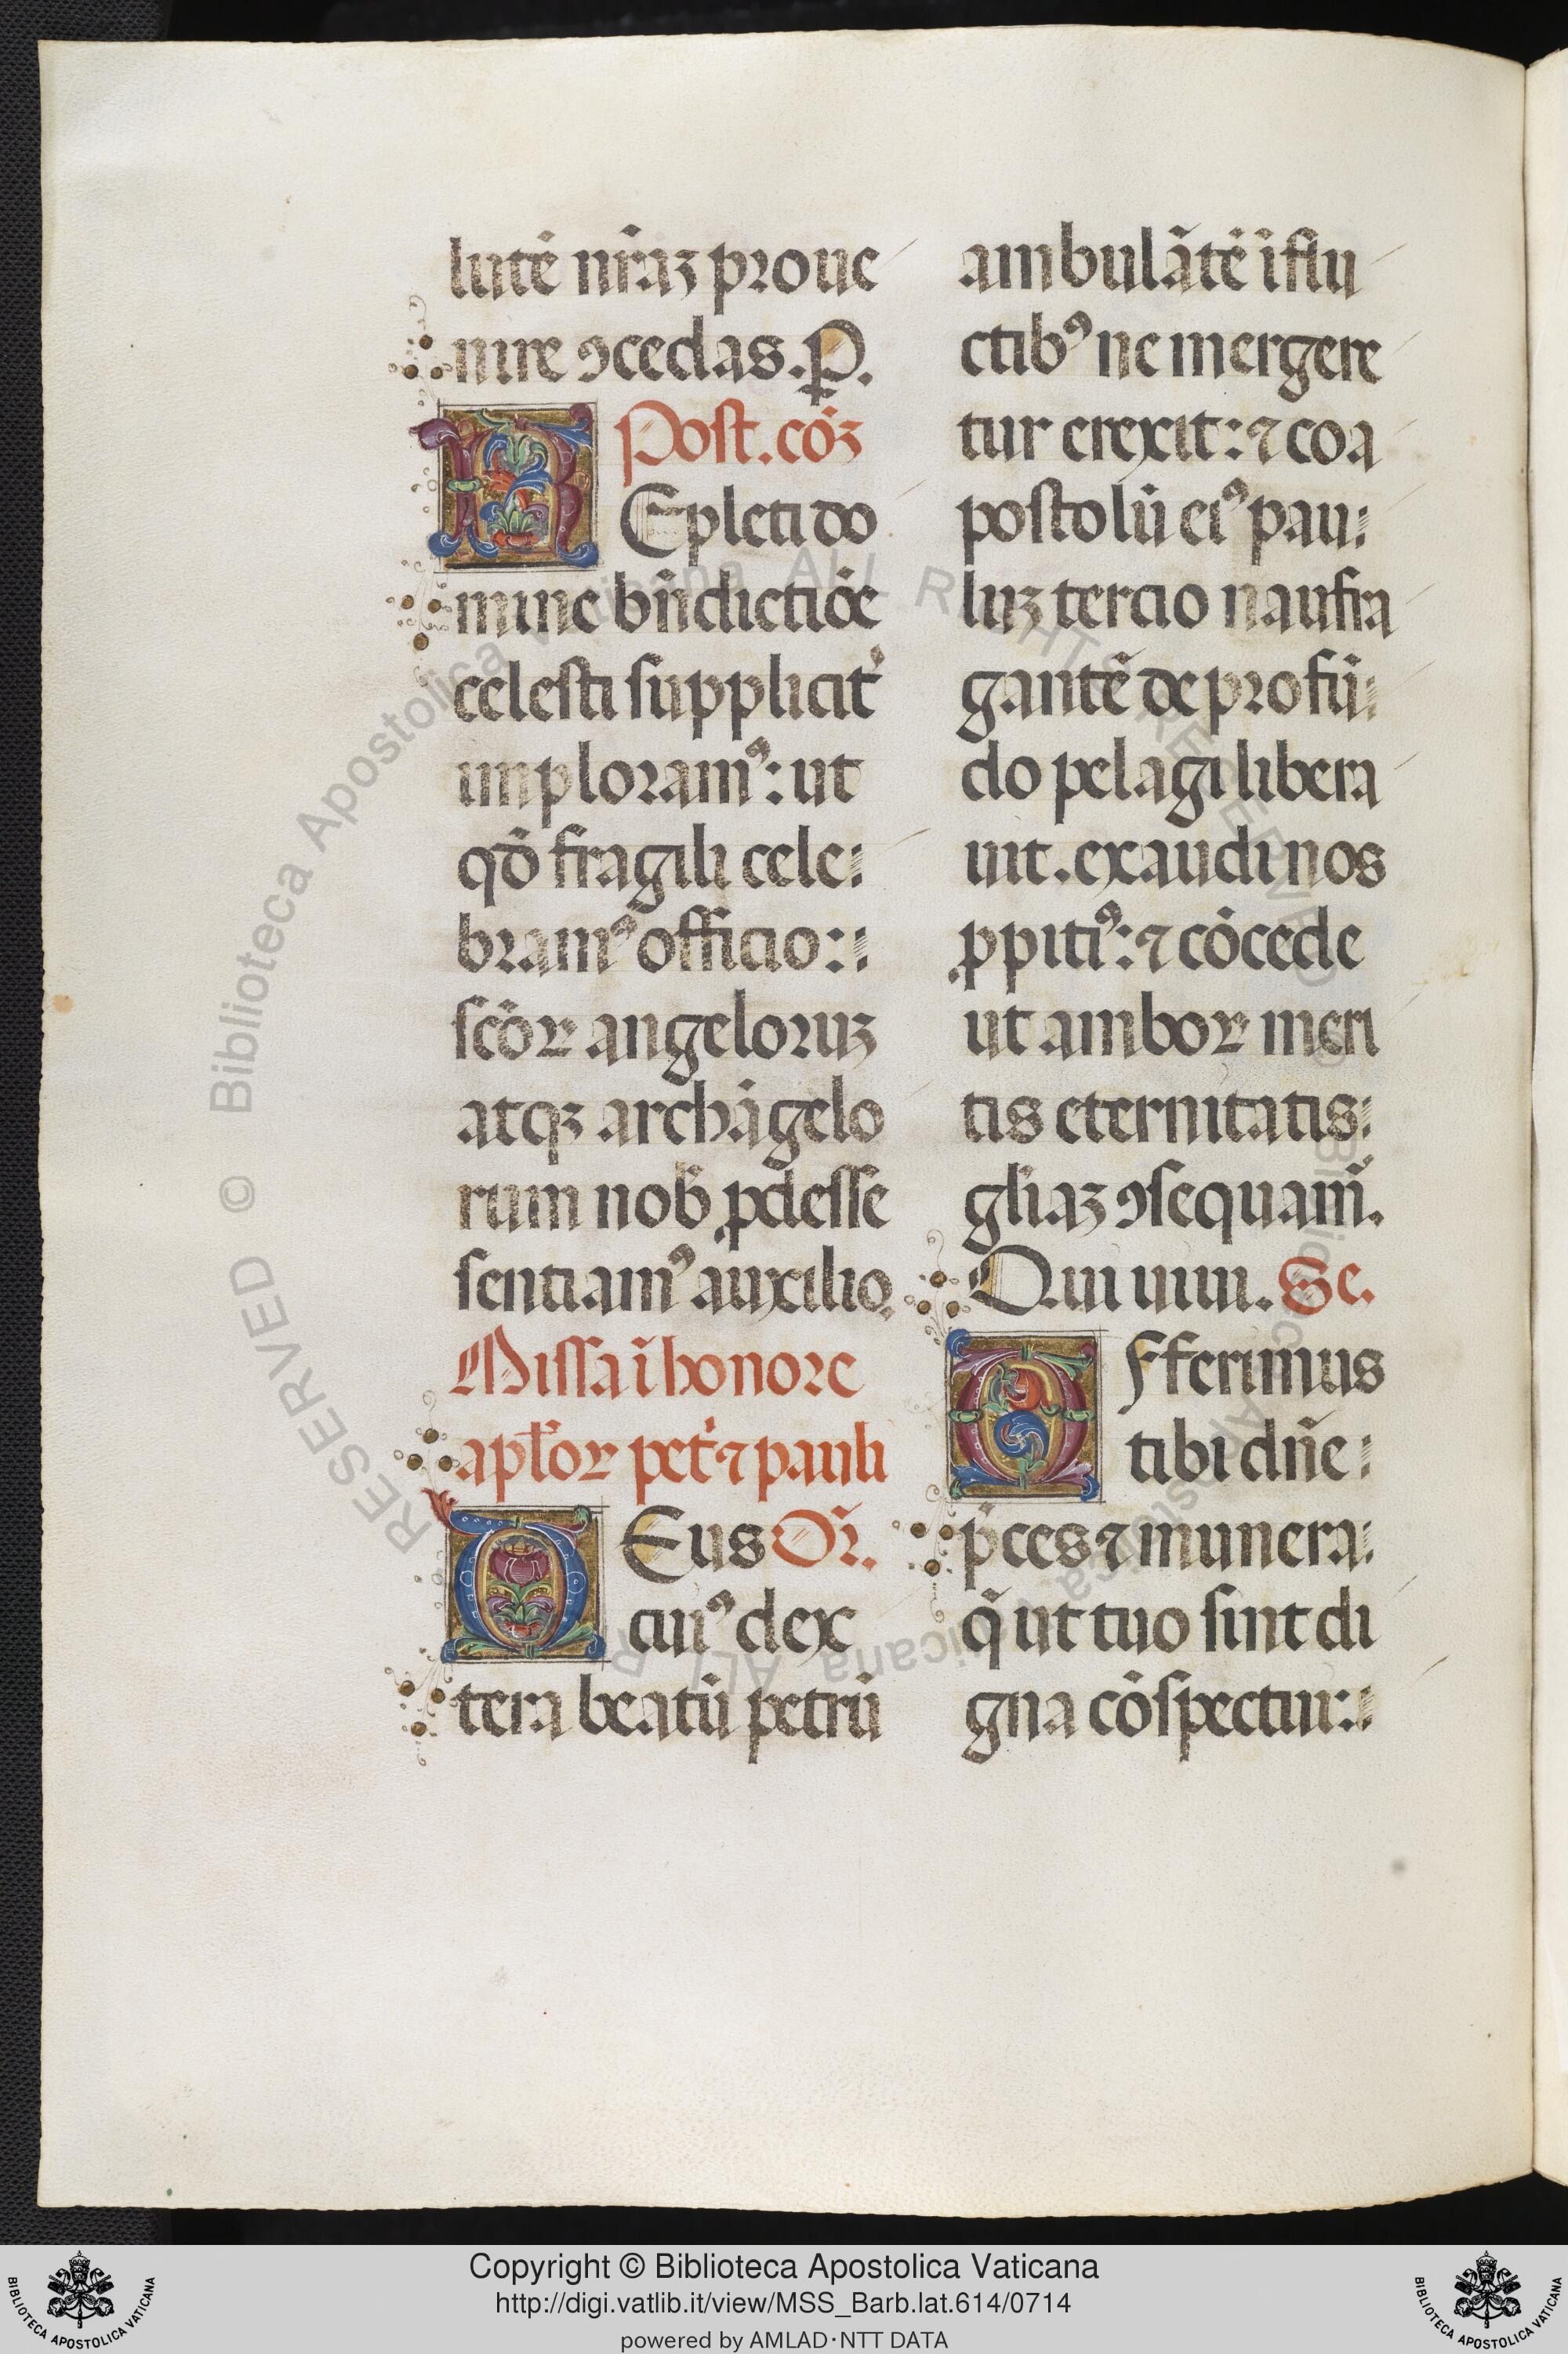 lutē nr̄aꝫ proue
nire ꝯcedas. P.
Post. cōꝫ
REpleti do
mine bn̄dictiōe
celesti suppliciť
imploramꝰ: ut
qd̄ fragili cele:
bramꝰ officio:
scōꝝ angeloruꝫ
atqꝫ archāgelo
rum nob̄ ꝓdesse
sentiamꝰ auxilio.
Missa ī honore
apl̄oꝝ pet̓ ⁊ pauli
DEus Or̄.
cuiꝰ dex
tera beatū petrū
ambulātē ī flu
ctibꝰ ne mergere
tur erexit: ⁊ coa
postolū eiꝰ pau:
luꝫ tercio naufra
gantē de profū:
do pelagi libera
uit. exaudi nos
ꝓpitiꝰ: ⁊ cōcede
ut amboꝝ meri
tis eternitatis:
gl̄iaꝫ ꝯsequam̄.
Qui uiui. Se.
OFferimus
tibi dn̄e:
p̄ces ⁊ munera:
q̄ ut tuo sint di
gna cōspectui:
© Biblioteca Apostolica Vaticana ALL RIGHTS RESERVED
Copyright © Biblioteca Apostolica Vaticana
http://digi.vatlib.it/view/MSS_Barb.lat.614/0714
powered by AMLAD·NTT DATA
BIBLIOTECA APOSTOLICA VATICANA
BIBLIOTECA APOSTOLICA VATICANA